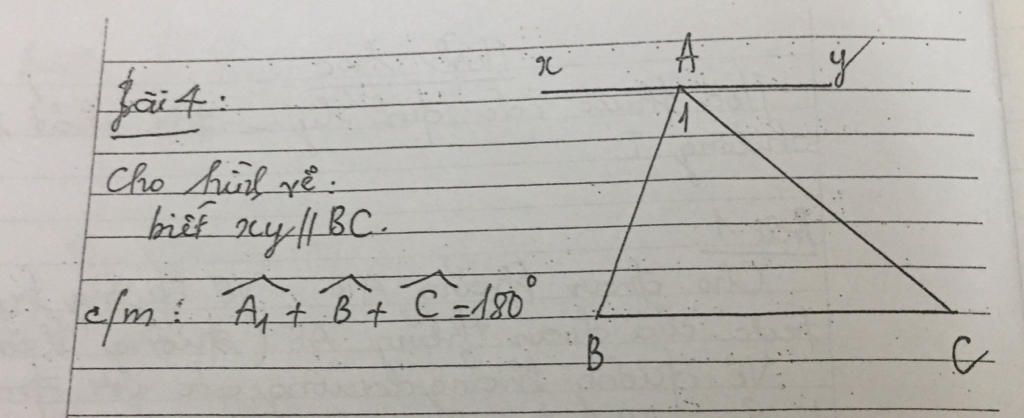 Bài 4:
Cho hình vẽ:
biết xy // BC.
c/m: Â₁ + B̂ + Ĉ = 180°
x A y
1
B C